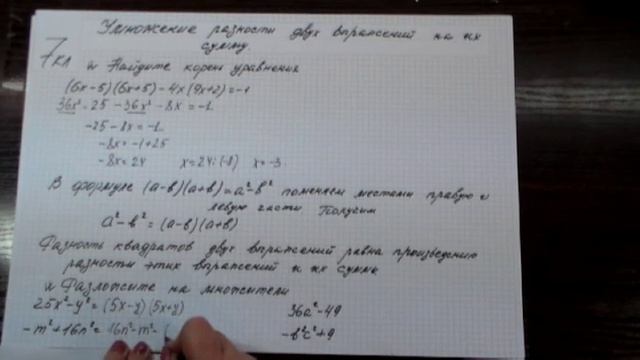 Умножение разности двух выражений на их
сумму
7 кл
№ Найдите корень уравнения
(6x-5)(6x+5)-4x(9x+2)=-1
36x²-25-36x²-8x=-1
-25-8x=-1
-8x=-1+25
-8x=24 x=24:(-8) x=-3
В формуле (a-в)(a+в)=a²-в² поменяем местами правую и
левую части Получим
a²-в²=(a-в)(a+в)
Разность квадратов двух выражений равна произведению
разности этих выражений и их суммы
№ Разложите на множители
25x²-y²=(5x-y)(5x+y) 36a²-49
-m²+16n²=16n²-m²=( -в²c²+9